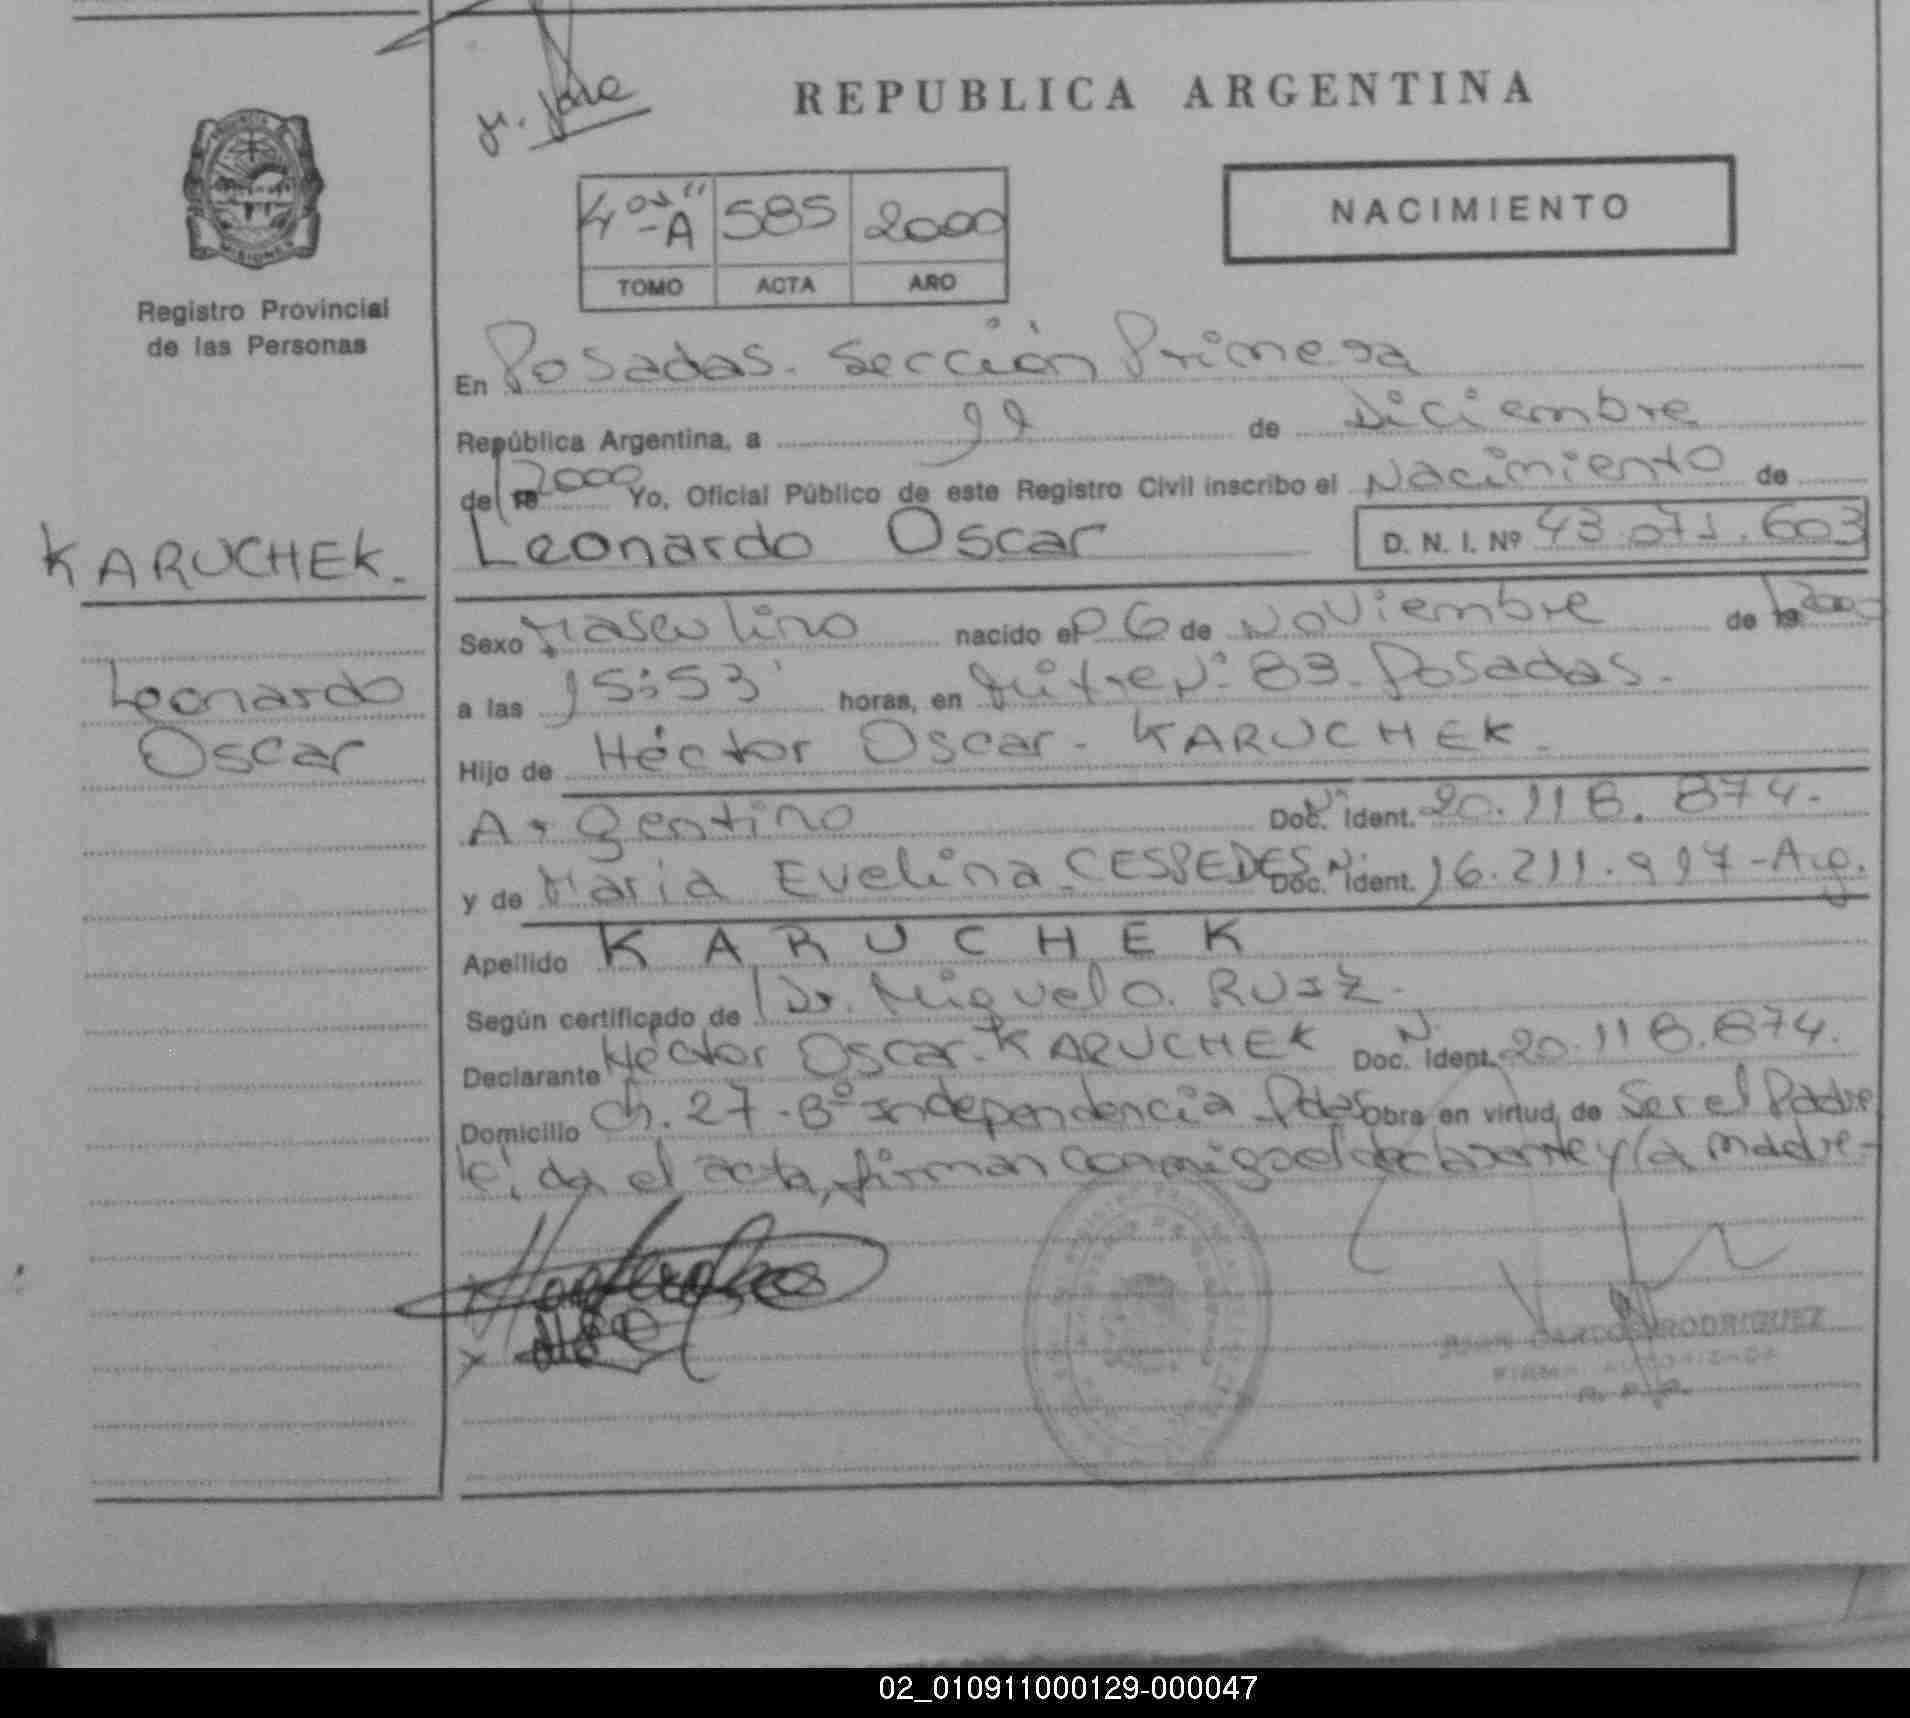 REPUBLICA ARGENTINA
4° "A" 585 2000
TOMO ACTA AÑO
NACIMIENTO
Registro Provincial
de las Personas
En Posadas. Sección Primera
República Argentina, a 11 de Diciembre
de 2000 Yo, Oficial Público de este Registro Civil inscribo el Nacimiento de
Leonardo Oscar D. N. I. Nº 43.071.603
KARUCHEK.
Leonardo
Oscar
Sexo Masculino nacido el 06 de Noviembre de 2000
a las 15:53 horas, en Mitre Nº 83. Posadas.
Hijo de Héctor Oscar - KARUCHEK.
Argentino Doc. Ident. 20.118.874.
y de Maria Evelina CESPEDES Doc. Ident. 16.211.917 - Arg.
Apellido KARUCHEK
Según certificado de Dr. Miguel O.
Declarante Héctor Oscar - KARUCHEK Doc. Ident. Nº 20.118.874.
Domicilio Ch. 27 - Bº Independencia Pdas Obra en virtud de Ser el Padre
leida el acta, firman conmigo el declarante y la madre-
JUAN CARLOS RODRIGUEZ
FIRMA AUTORIZADA
R. P. P.
02_010911000129-000047